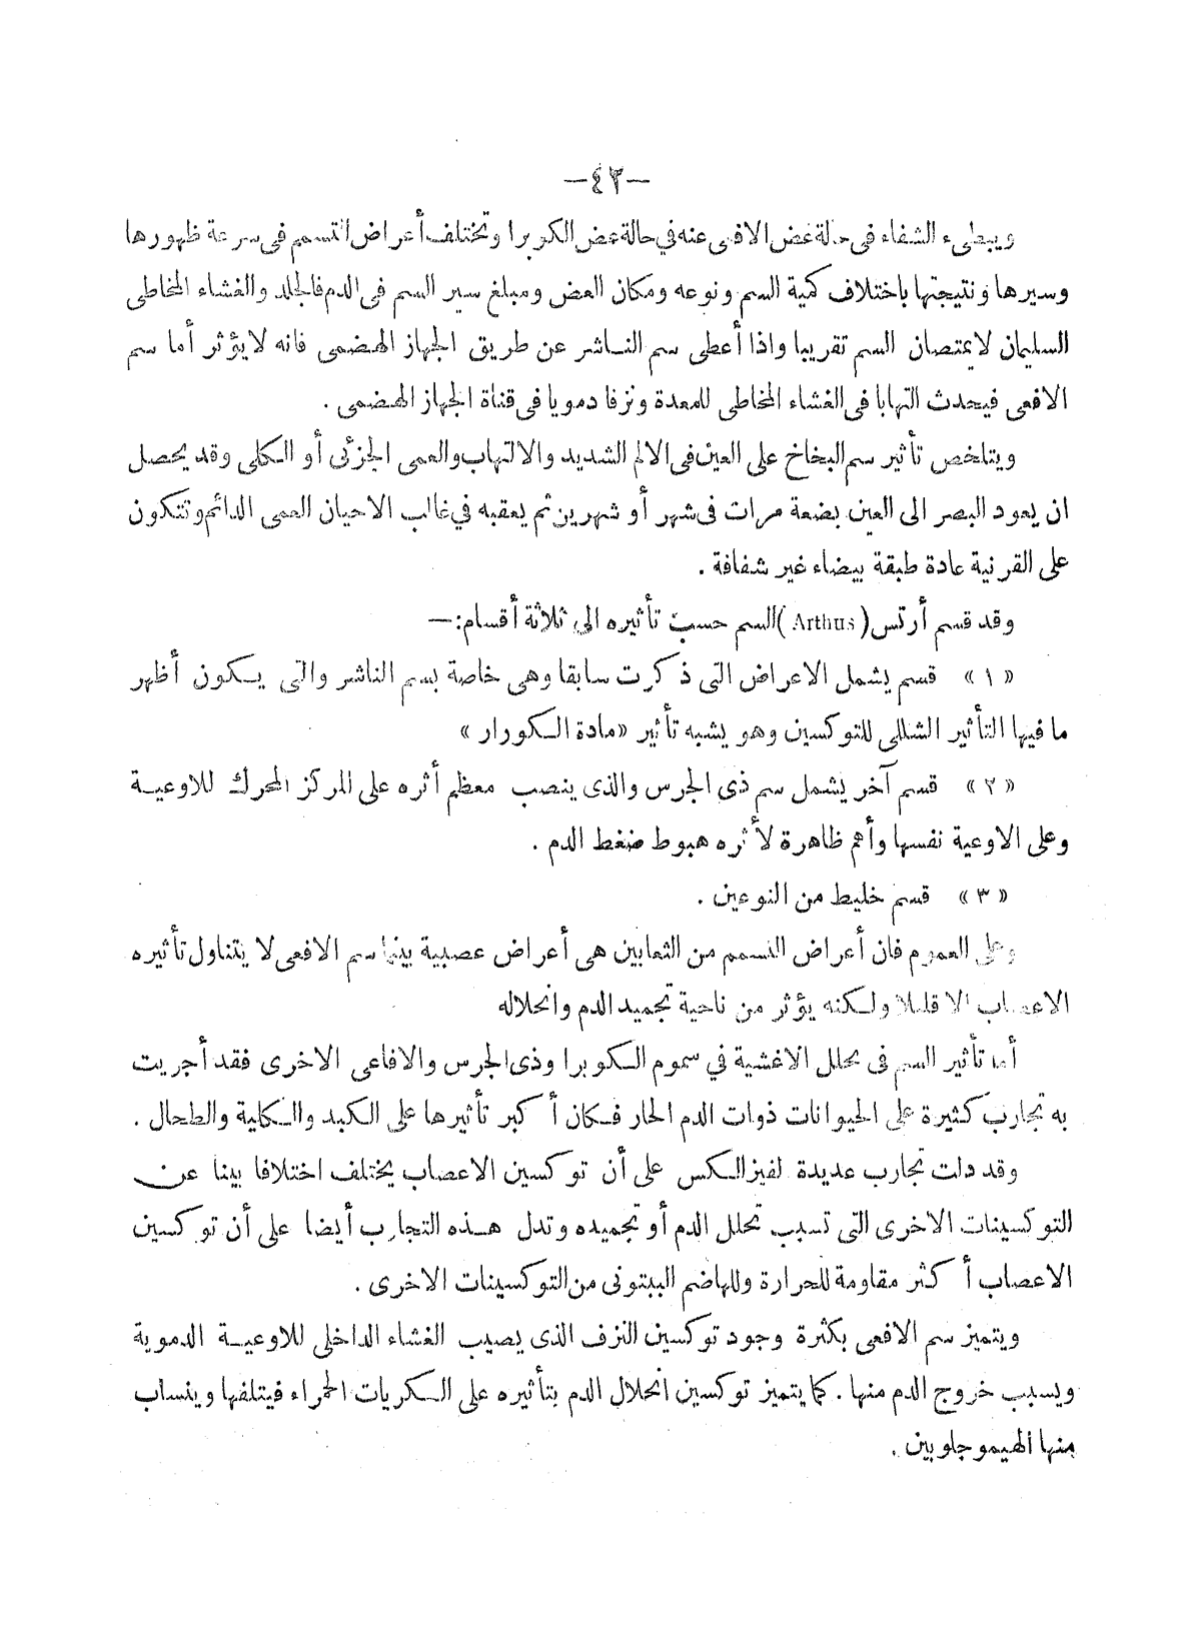 —٤٣—
ويبطىء الشفاء فى حالة عض الافعى عنه في حالة عض الكوبرا وتختلف أعراض التسمم فى سرعة ظهورها
وسيرها ونتيجتها باختلاف كمية السم ونوعه ومكان العض ومبلغ سير السم فى الدم فالجلد والغشاء المخاطى
السليمان لا يمتصان السم تقريبا واذا أعطى سم النـاشر عن طريق الجهاز الهضمى فانه لا يؤثر أما سم
الافعى فيحدث التهابا فى الغشاء المخاطى للمعدة ونزفا دمويا فى قناة الجهاز الهضمى .
ويتلخص تأثير سم البخاخ على العين فى الالم الشديد والالتهاب والعمى الجزئى أو الكلى وقد يحصل
ان يعود البصر الى العين بضعة مرات فى شهر أو شهرين ثم يعقبه في غالب الاحيان العمى الدائم وتتكون
على القرنية عادة طبقة بيضاء غير شفافة .
وقد قسم أرتس (Arthus) السم حسب تأثيره الى ثلاثة أقسام:—
« ١ » قسم يشمل الاعراض التى ذكرت سابقا وهى خاصة بسم الناشر والتى يـكون أظهر
ما فيها التأثير الشللى للتوكسين وهو يشبه تأثير «مادة الـكورار »
« ٢ » قسم آخر يشمل سم ذى الجرس والذى ينصب معظم أثره على المركز المحرك للاوعيـة
وعلى الاوعية نفسها وأهم ظاهرة لأثره هبوط ضغط الدم .
« ٣ » قسم خليط من النوعين .
وعلى العموم فان أعراض التسمم من الثعابين هى أعراض عصبية بينما سم الافعى لا يتناول تأثيره
الاعصاب الا قليلا ولـكنه يؤثر من ناحية تجميد الدم وانحلاله
أما تأثير السم فى تحلل الاغشية في سموم الـكوبرا وذى الجرس والافاعى الاخرى فقد أجريت
به تجارب كثيرة على الحيوانات ذوات الدم الحار فـكان أكبر تأثيرها على الـكبد والـكلية والطحال .
وقد دلت تجارب عديدة لفيزالـكس على أن توكسين الاعصاب يختلف اختلافا بينا عن
التوكسينات الاخرى التى تسبب تحلل الدم أو تجميده وتدل هـذه التجارب أيضا على أن توكسين
الاعصاب أكثر مقاومة للحرارة وللهاضم الببتونى من التوكسينات الاخرى .
ويتميز سم الافعى بكثرة وجود توكسين النزف الذى يصيب الغشاء الداخلى للاوعيـة الدموية
ويسبب خروج الدم منها . كما يتميز توكسين انحلال الدم بتأثيره على الـكريات الحمراء فيتلفها وينساب
منها الهيموجلوبين .